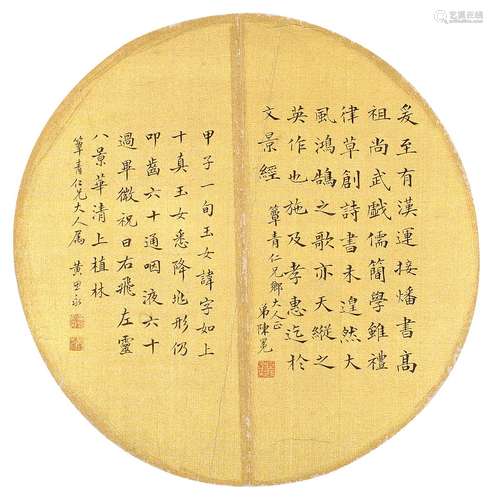 爰至有漢運接燔書高
祖尚武戲儒簡學雖禮
律草創詩書未遑然大
風鴻鵠之歌亦天縱之
英作也施及孝惠迄於
文景經
簟青仁兄鄉大人正
弟陳冕
甲子一旬玉女諱字如上
十真玉女悉降兆形仍
叩齒六十通咽液六十
過畢微祝曰右飛左靈
八景華清上植林
簟青仁兄大人屬 黃思永